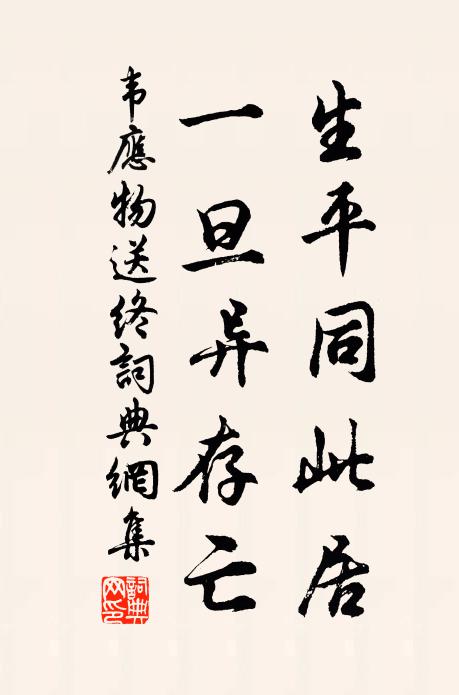 生平同此居
一旦异存亡
韦應物送终詞典網集
詞典网印